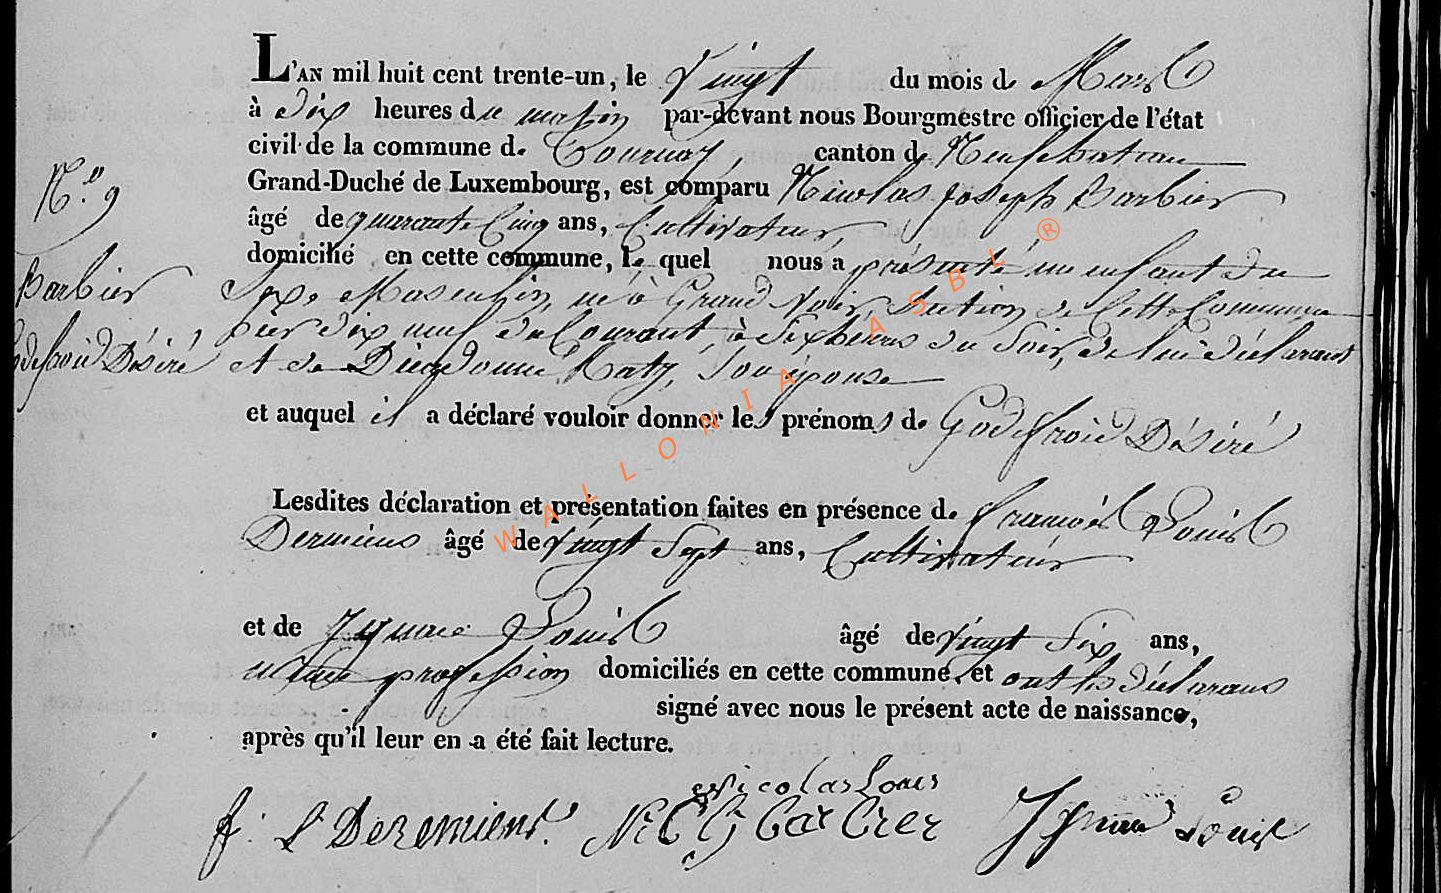 L'AN mil huit cent trente-un, le Vingt du mois de Mars
à Dix heures du matin par-devant nous Bourgmestre officier de l'état
civil de la commune de Tournay, canton de Neufchateau
N.º 9
Grand-Duché de Luxembourg, est comparu Nicolas Joseph Barbier
âgé de quarante Cinq ans, Cultivateur,
domicilié en cette commune, le quel nous a présenté un enfant du
Barbier
Sexe Masculin, né à Grand Voir, Section de Cette Commune
hier dix neuf du Courant, à Six heures du Soir, de lui déclarant
Godefroid Désiré
et de Dieudonnée Maty, Son épouse
et auquel il a déclaré vouloir donner les prénoms de Godefroid Désiré
Lesdites déclaration et présentation faites en présence de François Louis
âgé de Vingt Sept ans, Cultivateur
et de Ignace Louis âgé de Vingt Six ans,
même profession domiciliés en cette commune, et ont les déclarans
signé avec nous le présent acte de naissance,
après qu'il leur en a été fait lecture.
Nicolas Louis
f. L Deremiens N Barbier Ignace Louis
WALLONIA ASBL ®